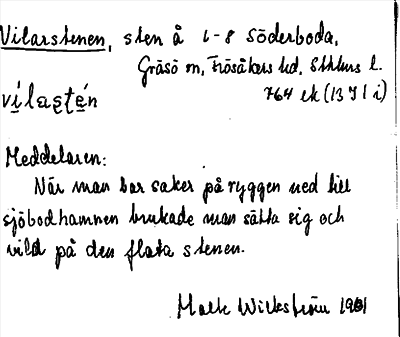 Vilarstenen, sten å 6-8 Söderboda,
Gräsö sn, Frösåkers hd, Sthlms l.
vílaște̱n 764 ek (13 I 1 i)
Meddelaren:
När man bar saker på ryggen ned till
sjöbodhamnen brukade man sätta sig och
vila på den flata stenen.
Mats Wikström 1961